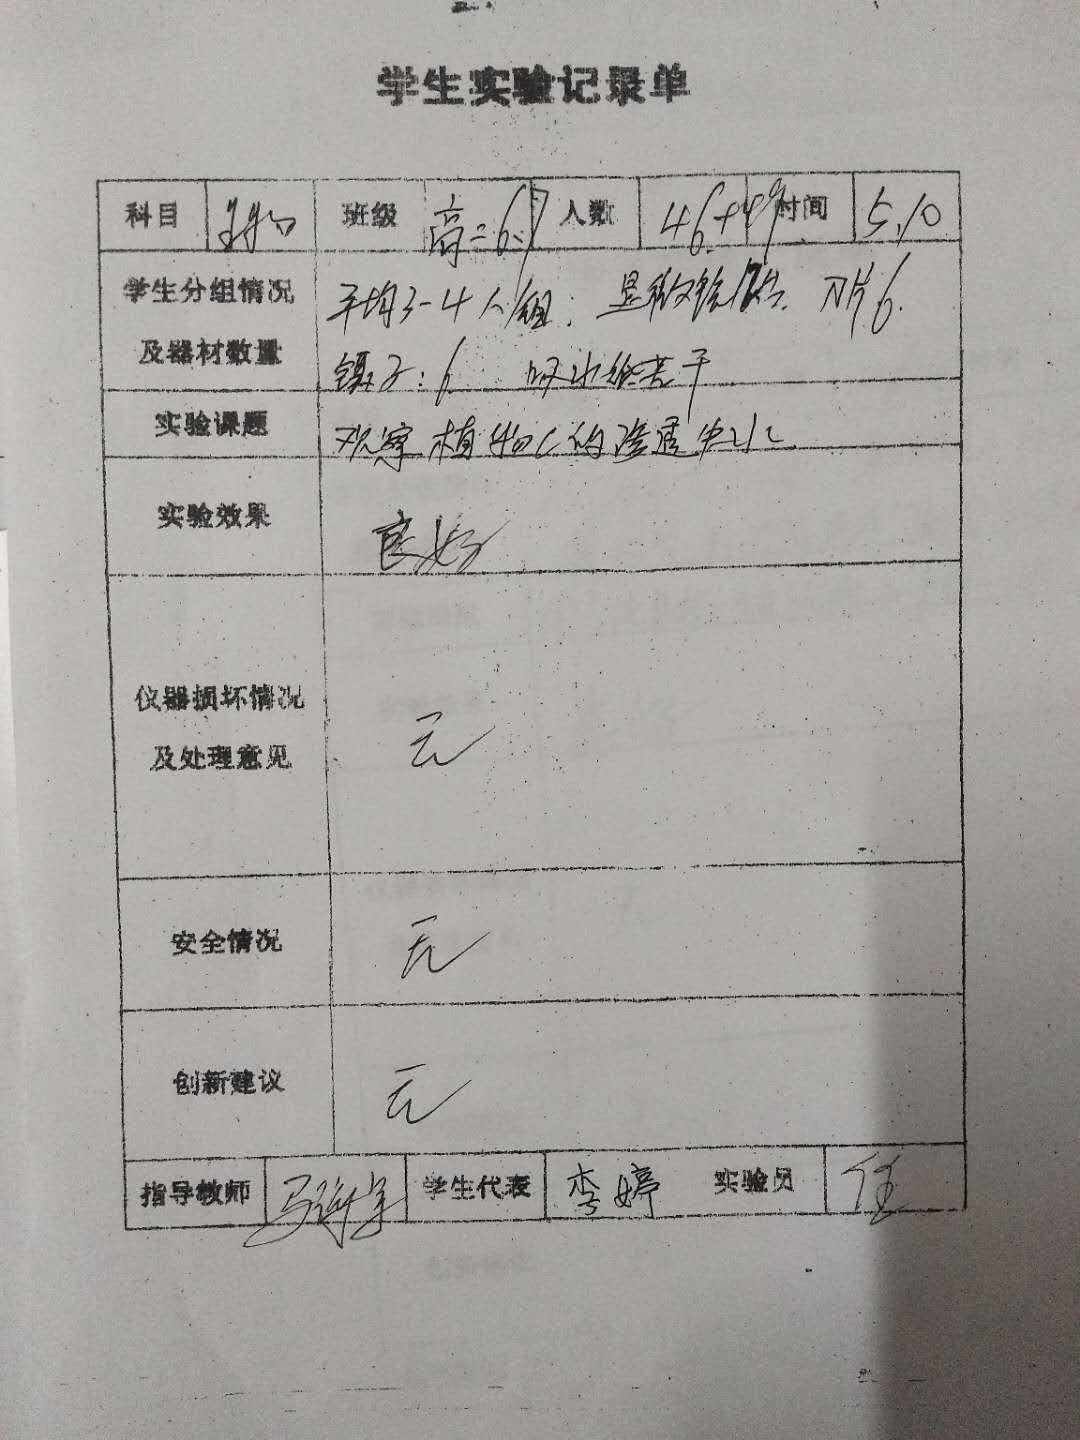 学生实验记录单
科目 生物 班级 高二6.7 人数 46+49 时间 5.10
学生分组情况 平均3-4人/组: 显微镜 刀片6.
及器材数量 镊子:6 吸水纸若干
实验课题 观察植物C的渗透
实验效果 良好
仪器损坏情况
及处理意见 无
安全情况 无
创新建议 无
指导教师 马 学生代表 李婷 实验员 任